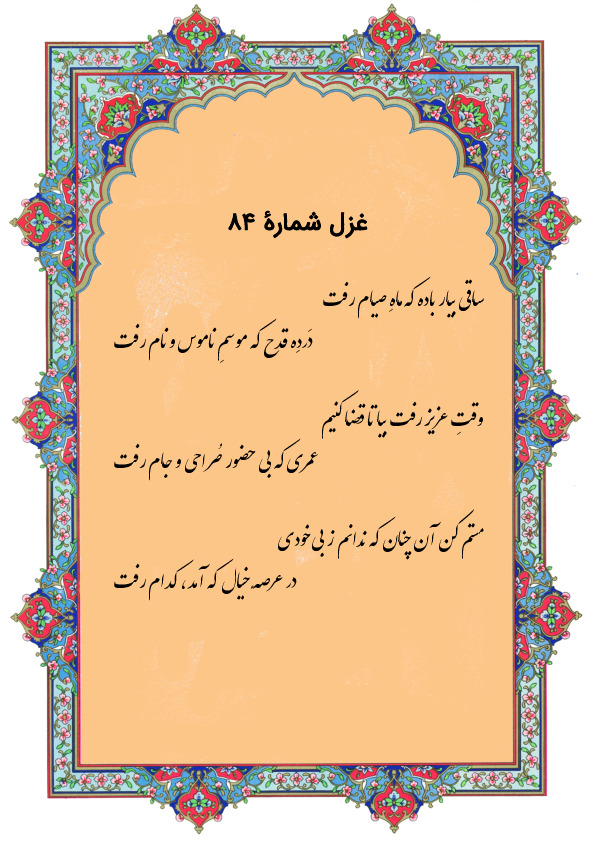 غزل شمارهٔ ۸۴
ساقی بیار باده که ماهِ صیام رفت
دَردِه قدح که موسمِ ناموس و نام رفت
وقتِ عزیز رفت بیا تا قضا کنیم
عمری که بی حضور صُراحی و جام رفت
مستم کن آن چنان که ندانم ز بی‌خودی
در عرصه خیال که آمد، کدام رفت